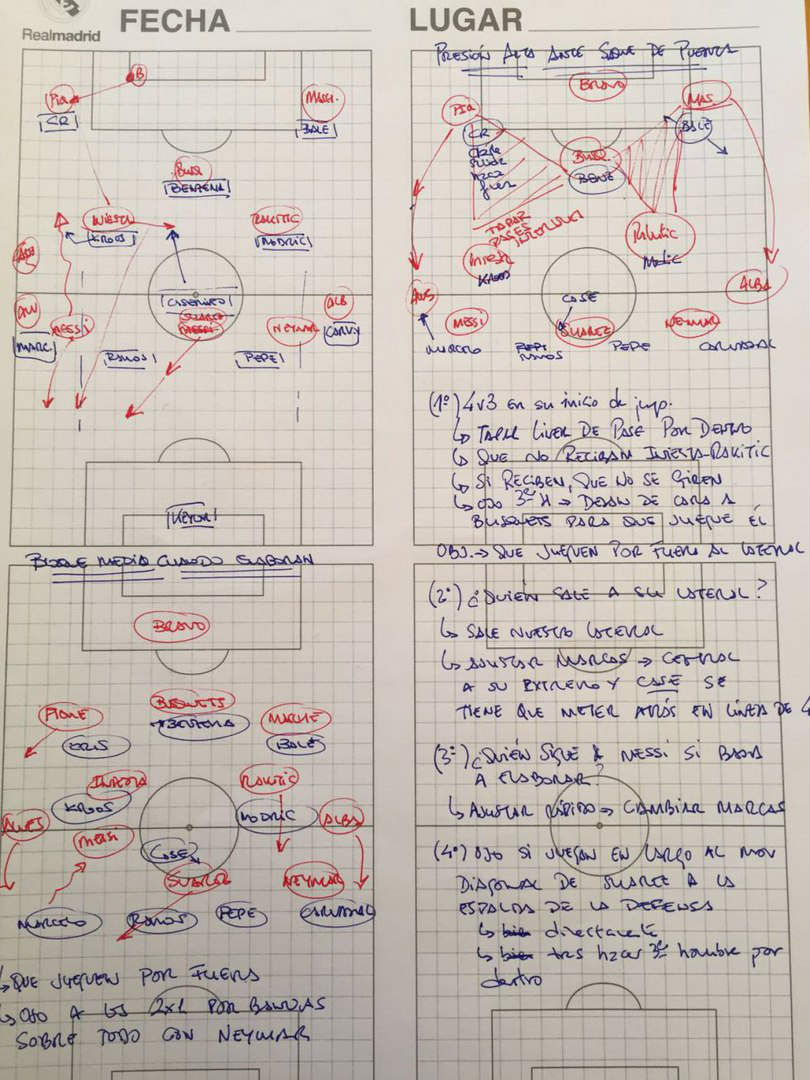 Realmadrid
FECHA
LUGAR
B
Piq
CR
MASCH.
BALE
BUSQ
BENZEMA
INIESTA
KROOS
RAKITIC
MODRIC
CASEMIRO
SUAREZ
MESSI
MARC.
NEYMAR
ALB
CARVJ
RAMOS
PEPE
KEYLOR
PRESIÓN ALTA ANTE SAQUE DE PUERTA
BRAVO
PIQ
MAS.
CR
BALE
BUSQ.
BENZ
TAPAR
PASES
INTERIORES
INIEST
KROOS
Rakitic
Modric
ALVES
MESSI
CASE
SUAREZ
NEYMAR
ALBA
MARCELO
RAMOS
PEPE
CARVAJAL
(1º) 4v3 en su inicio de jueg.
↳ TAPAR LINEA DE PASE POR DENTRO
↳ QUE NO RECIBAN INIESTA-RAKITIC
↳ SI RECIBEN, QUE NO SE GIREN
↳ OJO 3er H → DEJAN DE CARA A
BUSQUETS PARA QUE JUEGUE ÉL
OBJ. → QUE JUEGUEN POR FUERA AL LATERAL
(2º) ¿QUIÉN SALE A SU LATERAL?
↳ SALE NUESTRO LATERAL
↳ AJUSTAR MARCAS → CENTRAL
A SU EXTREMO Y CASE SE
TIENE QUE METER ATRÁS EN LÍNEA DE 4
(3º) ¿QUIÉN SIGUE A MESSI SI BAJA
A ELABORAR?
↳ AJUSTAR RÁPIDO → CAMBIAR MARCAS
(4º) OJO SI JUEGAN EN LARGO AL MOV
DIAGONAL DE SUAREZ A LA
ESPALDA DE LA DEFENSA
↳ bien directamente
↳ bien tras hzar 3er hombre por
dentro
BLOQUE MEDIO CUANDO ELABORAN
BRAVO
PIQUE
CRIS
BUSQUETS
BENZEMA
MASCHE
BALE
INIESTA
KROOS
RAKITIC
MODRIC
ALVES
MESSI
CASE
SUAREZ
NEYMAR
ALBA
MARCELO
RAMOS
PEPE
CARVAJAL
↳ QUE JUEGUEN POR FUERA
↳ OJO A LOS 2x1 POR BANDAS
SOBRE TODO CON NEYMAR